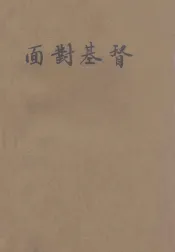 面對基督